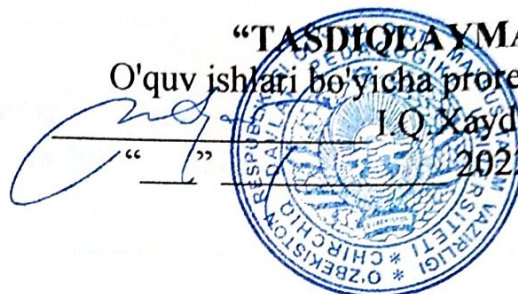 “TASDIQLAYMA
O'quv ishlari bo'yicha prore
I.Q.Xayd
“ ” 202
O'ZBEKISTON RESPUBLIKASI
VAZIRLIGI
CHIRCHIQ DAVLAT PEDAGOGIKA